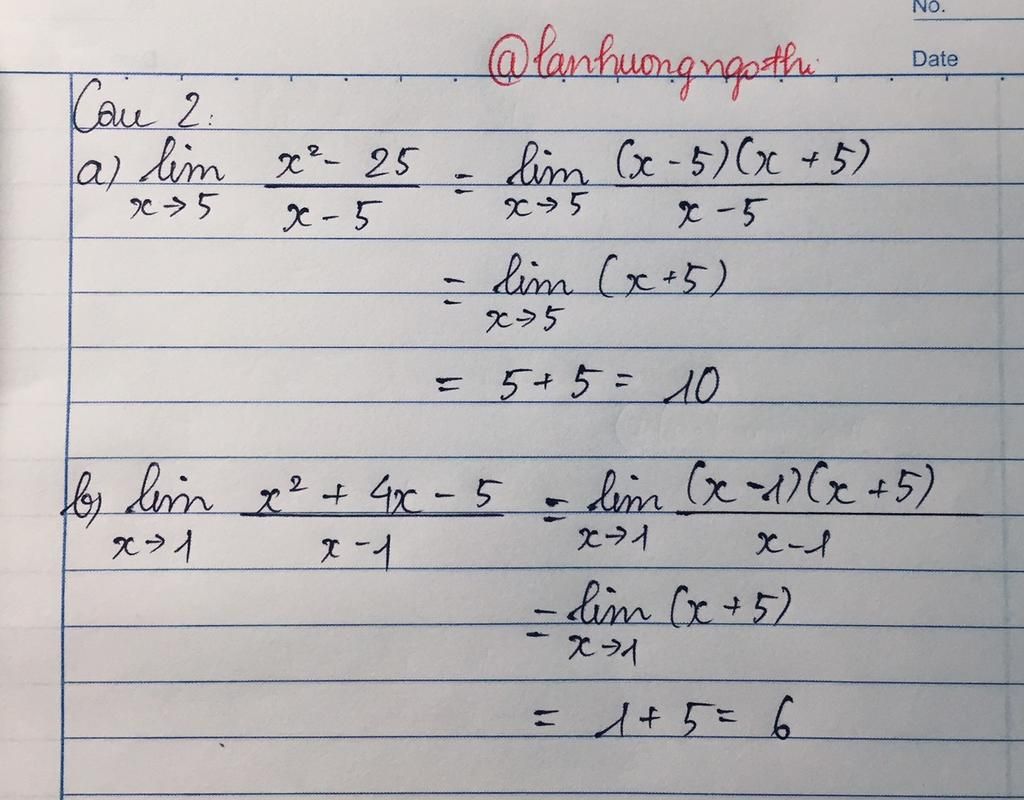 No.
@lanhuongngothi
Date
Câu 2:
a) lim x→5 (x² - 25)/(x - 5) = lim x→5 ((x - 5)(x + 5))/(x - 5)
= lim x→5 (x + 5)
= 5 + 5 = 10
b) lim x→1 (x² + 4x - 5)/(x - 1) = lim x→1 ((x - 1)(x + 5))/(x - 1)
= lim x→1 (x + 5)
= 1 + 5 = 6